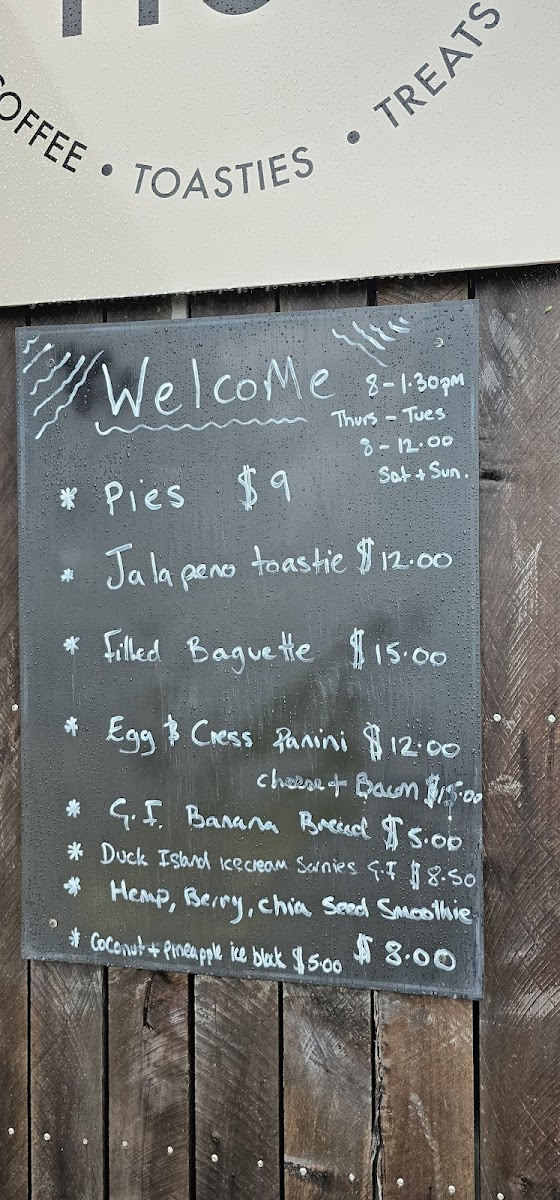 COFFEE • TOASTIES • TREATS
Welcome
8-1.30pm
Thurs - Tues
8-12.00
Sat + Sun.
* Pies $9
* Jalapeno toastie $12.00
* Filled Baguette $15.00
* Egg & Cress Panini $12.00
cheese + Bacon
* G.F. Banana Bread $5.00
* Duck Island icecream Sarnies G.F $8.50
* Hemp, Berry, Chia Seed Smoothie
$8.00
* Coconut + Pineapple ice block $5.00